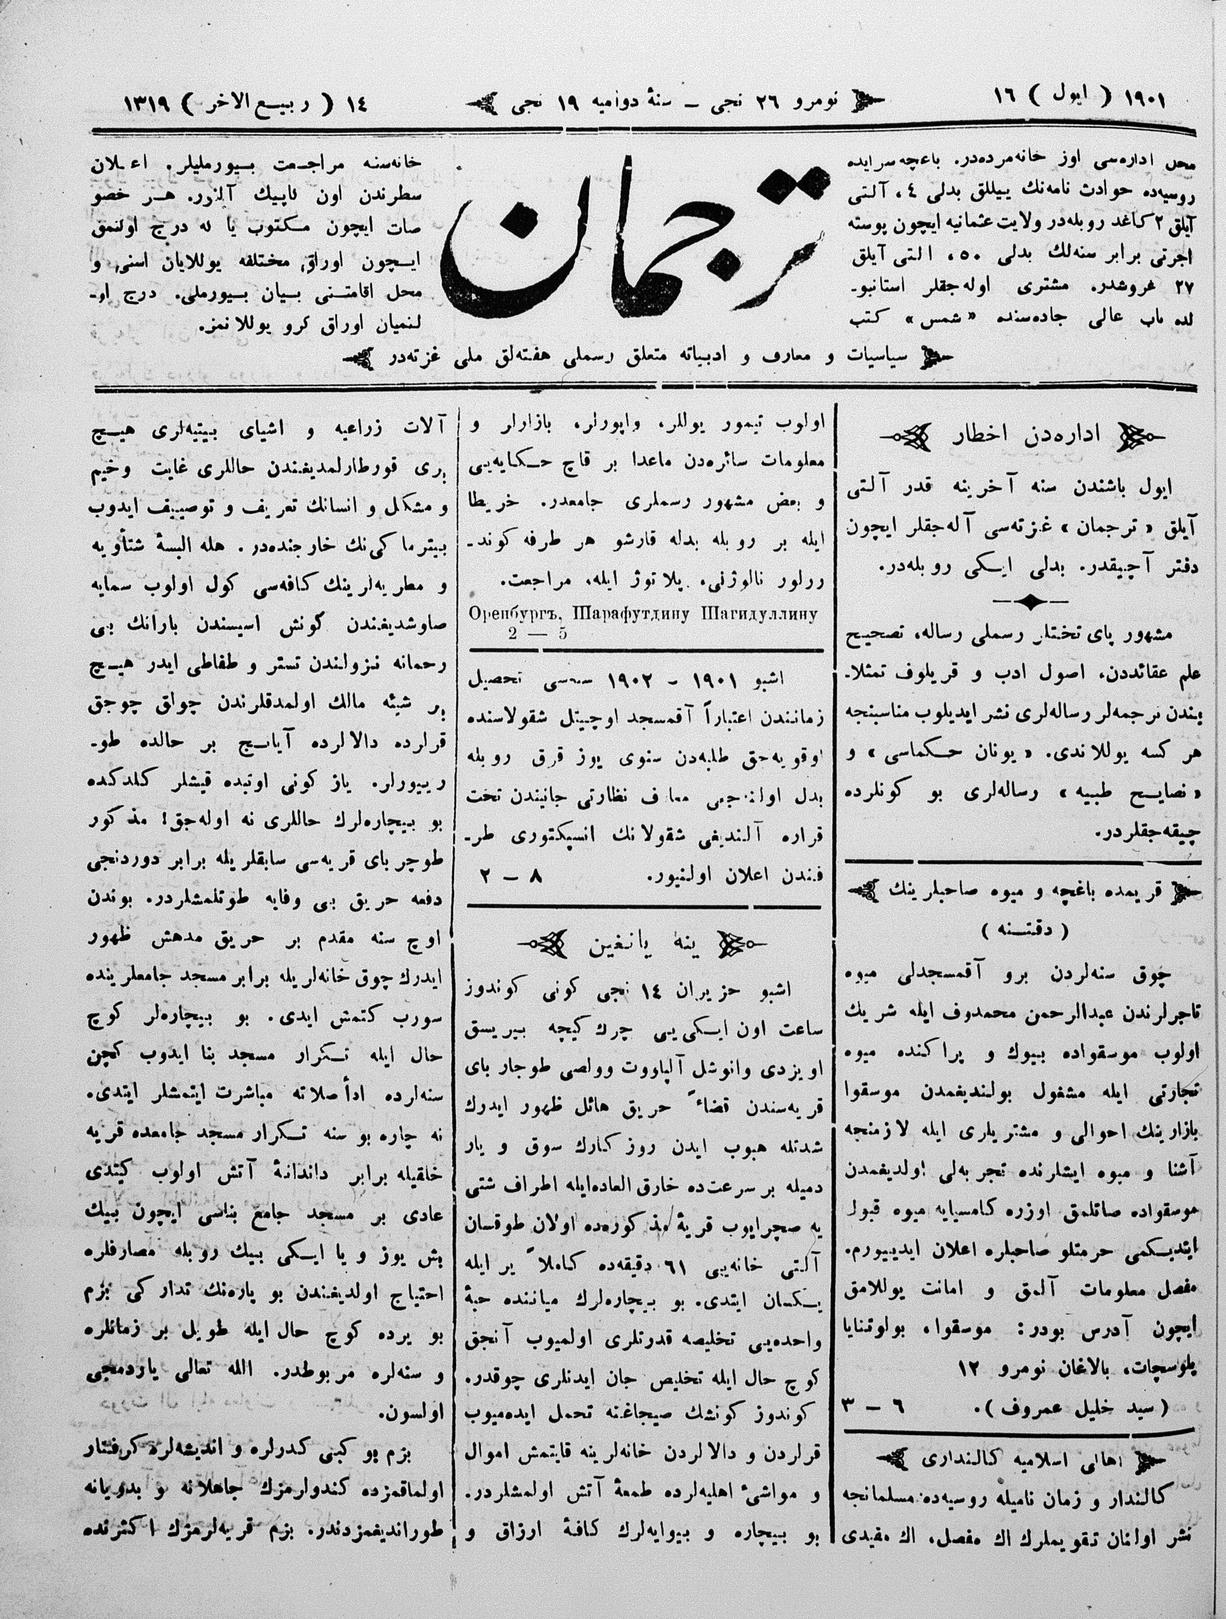 ١٩٠١ ( ايول ) ١٦
نومرو ٢٦ نجى – سنهٔ دواميه ١٩ نجى
١٤ ( ربيع الاخر ) ١٣١٩
محل اداره‌سى اوز خانه‌مزده‌در. باغچه سرايده
روسيه‌ده حوادث نامه‌نك ييللق بدلى ٤، آلتى
آيلق ٢ كاغد روبله‌در ولايت عثمانيه ايچون پوسته
اجرتى برابر سنه‌لك بدلى ٥٠، التى آيلق
٢٧ غروشدر. مشترى اوله‌جقلر استانبو‌ـ
لده باب عالى جاده‌سنده «شمس» كتب
ترجمان
خانه‌سنه مراجعت بيورمليلر. اعلان
سطرندن اون قاپيك آلنور. هر خصو
صات ايچون مكتوب يا له درج اولنمق
ايچون اوراق مختلفه يوللايان اسنى و
محل اقامتنى بيان بيورملى. درج او‌ـ
لنميان اوراق كرو يوللانمز.
سياسيات و معارف و ادبياته متعلق رسملى هفته‌لق ملى غزته‌در
اداره‌دن اخطار
ايول باشندن سنه آخرينه قدر آلتى
آيلق «ترجمان» غزته‌سى آله‌جقلر ايچون
دفتر آچيقدر. بدلى ايكى روبله‌در.
مشهور پاى تختلر رسملى رساله، تصحيح
علم عقائددن، اصول ادب و قريلوف تمثلا‌ـ
يندن ترجمه‌لر رساله‌لرى نشر ايديلوب مناسبنجه
هر كسه يوللاندى. «يونان حكماسى» و
«نصايح طبيه» رساله‌لرى بو كونلرده
چيقه‌جقلردر.
قريمده باغچه و ميوه صاحبلرينك
( دقتنه )
چوق سنه‌لردن برو آقمسجدلى ميوه
تاجرلرندن عبدالرحمن محمدوف ايله شريك
اولوب موسقواده بيوك و پراكنده ميوه
تجارتى ايله مشغول بولنديغمدن موسقوا
بازارينك احوالى و مشتريلرى ايله لازمنجه
آشنا و ميوه ايشلرنده تجربه‌لى اولديغمدن
موسقواده صاتلمق اوزره كامسيايه ميوه قبول
ايتديكمى حرمتلو صاحبلره اعلان ايدييورم.
مفصل معلومات آلمق و امانت يوللامق
ايچون آدرس بودر: موسقوا، بولوتنايا
پلوسچات، بالاغان نومرو ١٢
( سيد خليل عمروف ). ٦ – ٣
اهالى اسلاميه كالندارى
كالندار و زمان ناميله روسيه‌ده مسلمانجه
نشر اولنان تقويملرك اك مفصل، اك مفيدى
اولوب تيمور يوللر، واپورلر، بازارلر و
معلومات سائره‌دن ماعدا بر قاچ حكايه‌يى
و بعض مشهور رسملرى جامعدر. خريطا
ايله بر روبله بدله قارشو هر طرفه كوند‌ـ
ررلور نالوژنى. پلاتوژ ايله، مراجعت.
Оренбургъ, Шарафутдину Шагидуллину
2 — 5
اشبو ١٩٠١ – ١٩٠٢ سنه‌سى تحصيل
زمانندن اعتباراً آقمسجد اوچيتل شقولاسنده
اوقويه‌جق طلبه‌دن سنوى يوز قرق روبله
بدل اولنه‌جغى معارف نظارتى جانبندن تحت
قراره آلنديغى شقولانك انسپكتورى طر‌ـ
فندن اعلان اولنيور. ٨ – ٢
ينه يانغين
اشبو حزيران ١٤ نجى كونى كوندوز
ساعت اون ايكى‌يى چرك كيچه بيريسق
اويزدى وانوشل آلپاووت وولصى طوجار باى
قريه‌سندن قضاءً حريق هائل ظهور ايدرك
شدتله هبوب ايدن روزكارك سوق و يار
دميله بر سرعت‌ده خارق العاده‌ايله اطراف شتى
يه صچرايوب قريهٔ مذكوره‌ده اولان طوقسان
آلتى خانه‌يى ٦١ دقيقه‌ده كاملاً ير ايله
يكسان ايتدى. بو بيچاره‌لرك مياننده حبهٔ
واحده‌يى تخليصه قدرتلرى اولميوب آنجق
كوچ حال ايله تخليص جان ايدنلرى چوقدر.
كوندوز كونشك صيجاغنه تحمل ايده‌ميوب
قرلردن و دالالردن خانه‌لرينه قايتمش اموال
و مواشئ اهليه‌لرده طمعهٔ آتش اولمشلردر.
بو بيچاره و بيوايه‌لرك كافهٔ ارزاق و
آلات زراعيه و اشياى بيتيه‌لرى هيچ
برى قورطارلمديغندن حاللرى غايت وخيم
و مشكل و انسانك تعريف و توصيفى ايدوب
بيترماكى‌نك خارجنده‌در. هله البسهٔ شتأويه
و مطريه‌لرينك كافه‌سى كول اولوب سمايه
صاوشديغندن گونش اسيسندن بارانك بى
رحمانه نزولندن تستر و طفاطى ايدر هيچ
بر شيئه مالك اولمدقلرندن چولق چوجق
قرلرده دالالرده آيانچ بر حالده طو‌ـ
رييورلر. ياز كونى اوتبده قيشلر كلدكده
بو بيچاره‌لرك حاللرى نه اوله‌جق! مذكور
طوچر باى قريه‌سى سابقلريله برابر دوردنجى
دفعه حريق بى وفايه طوتلمشلردر. بوندن
اوچ سنه مقدم بر حريق مدهش ظهور
ايدرك چوق خانه‌لريله برابر مسجد جامعلرينده
سورب كتمش ايدى. بو بيچاره‌لر كوچ
حال ايله تكرار مسجد بنا ايدوب كچن
سنه‌لرده ادأصلاته مباشرت ايتمشلر ايتدى.
نه چاره بو سنه تكرار مسجد جامعده قريه
خلقيله برابر داندانهٔ آتش اولوب كيتدى
عادى بر مسجد جامع بناسى ايچون بيك
بش يوز و يا ايكى بيك روبله مصارفلره
احتياج اولديغندن بو پاره‌نك تداركى بزم
بو يرده كوچ حال ايله طويل بر زمانلره
و سنه‌لره مربوطدر. الله تعالى ياردمجى
اولسون.
بزم بو كبى كدرلره و انديشه‌لره كرفتار
اولماقمزده كندولرمزك جاهلانه و بدويانه
طورانديغمزدندر. بزم قريه‌لرمزك اكثرنده